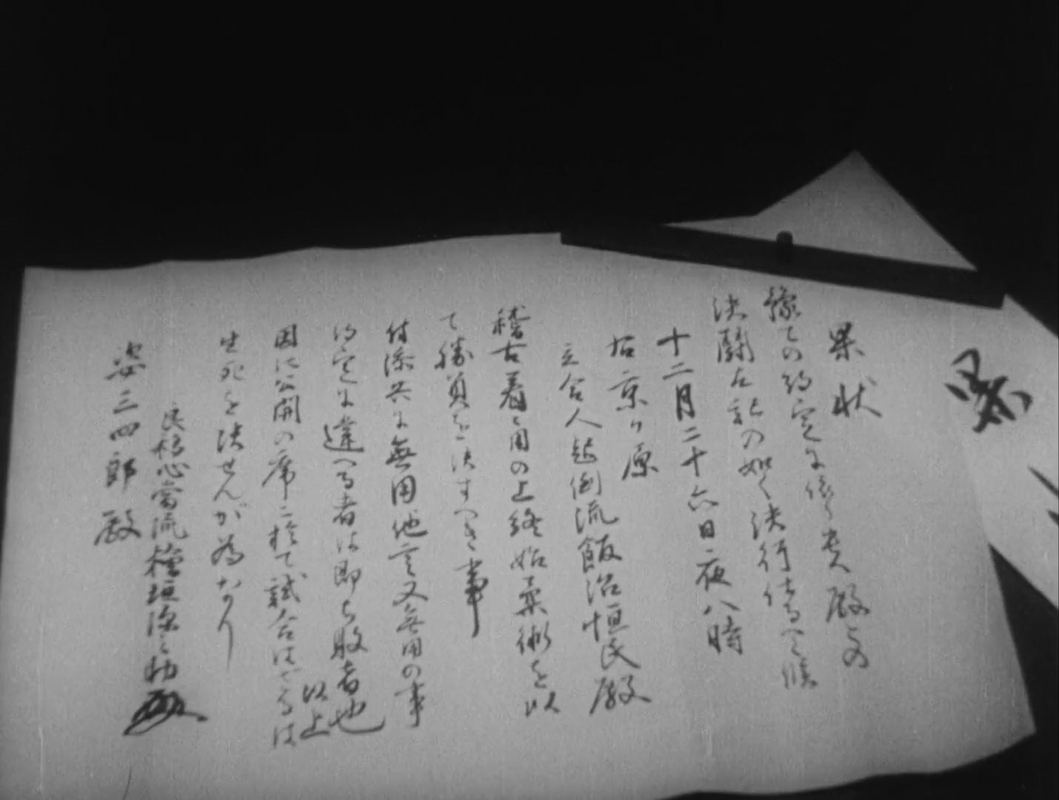 果
果状
豫ての約定に依り貴殿との
決闘左記の如く決行仕るべく候
十二月二十六日夜八時
右京ヶ原
立合人起倒流飯沼恒民殿
稽古着着用の上終始柔術を以
て勝負を決すべき事
付添共に無用他言又無用の事
約定に違へる者は即ち敗者也
以上
因に公開の席に於て試合はざるは
生死を決せんが為なり
良移心當流檜垣源之助
姿三四郎殿